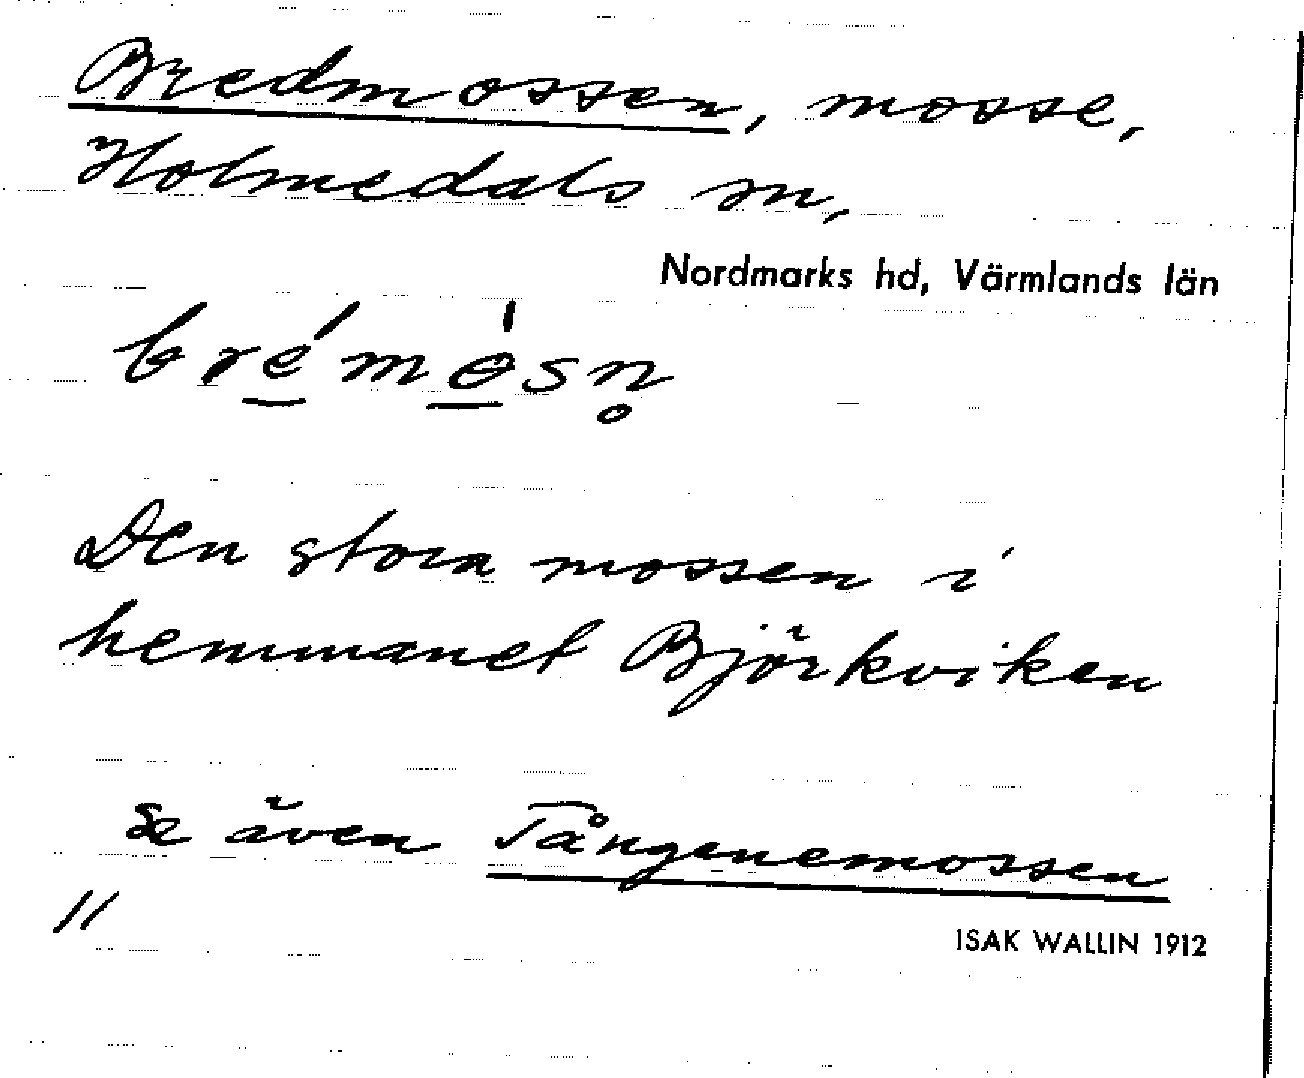 Bredmossen, mosse,
Holmedals sn,
Nordmarks hd, Värmlands län
brémòsn̥
Den stora mossen i
hemmanet Björkviken
Se även Tångenemossen
11
ISAK WALLIN 1912